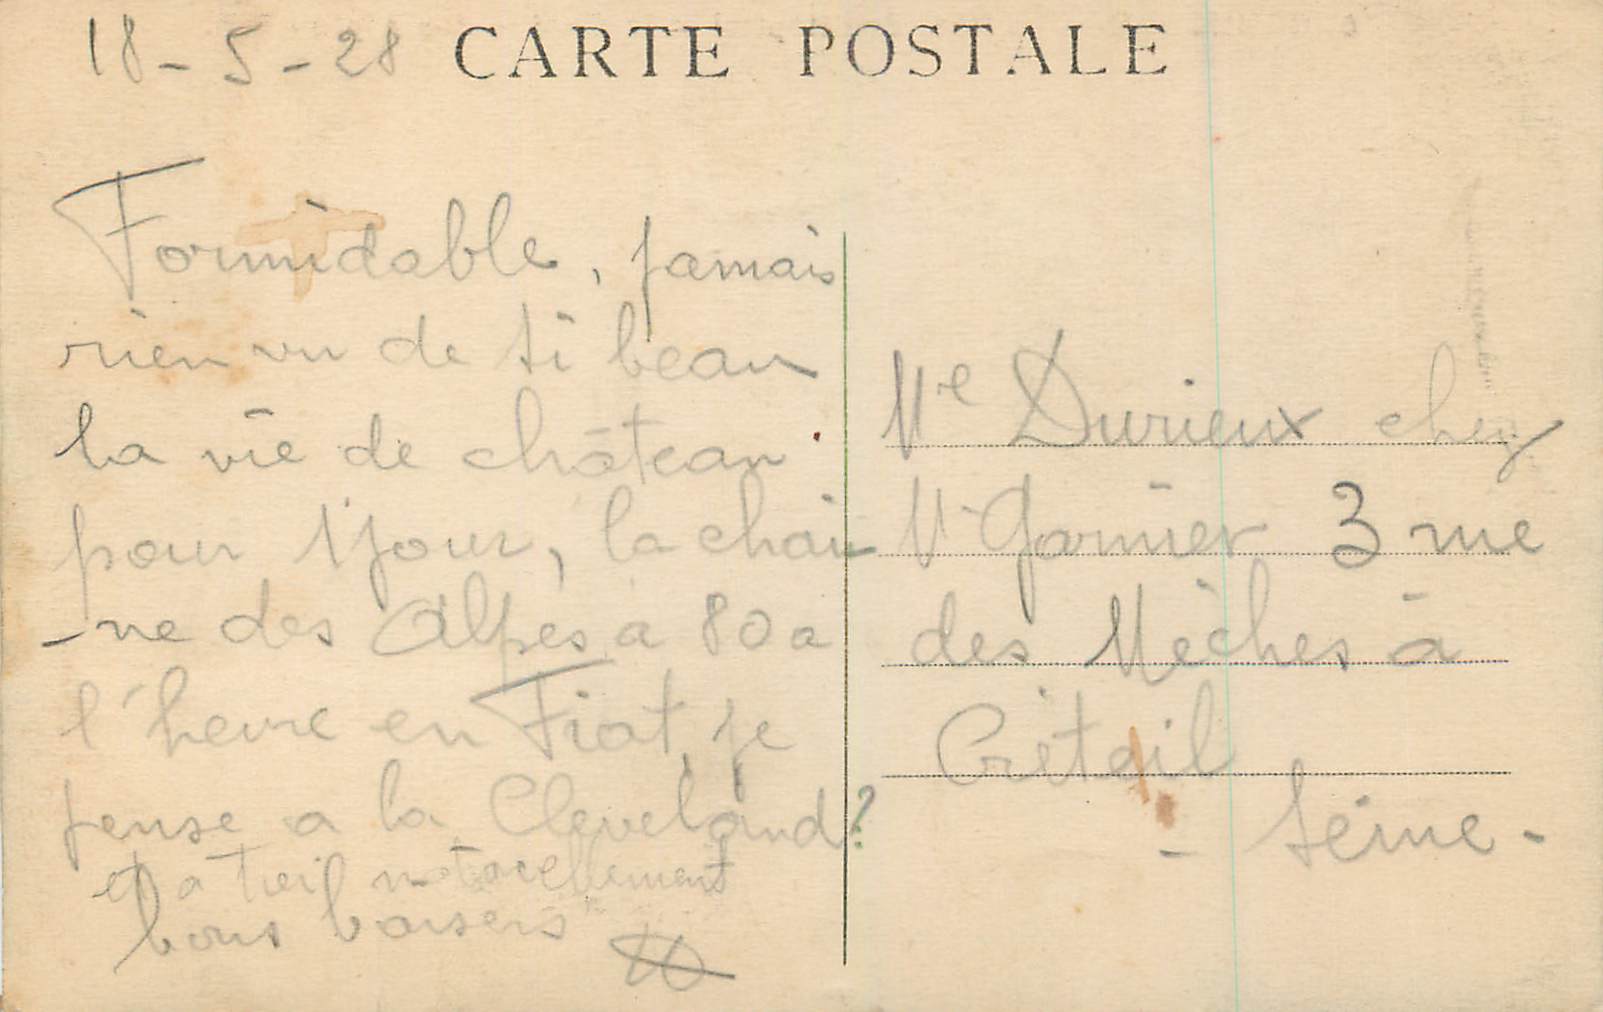 18-5-28 CARTE POSTALE
Formidable, jamais
rien vu de si beau
la vie de château
pour 1 jour, la chaî
-ne des Alpes a 80 a
l'heure en Fiat, je
pense a la Cleveland?
et a toi naturellement
bons baisers
Me Durieux chez
M Garnier 3 rue
des Mèches à
Créteil
- Seine -